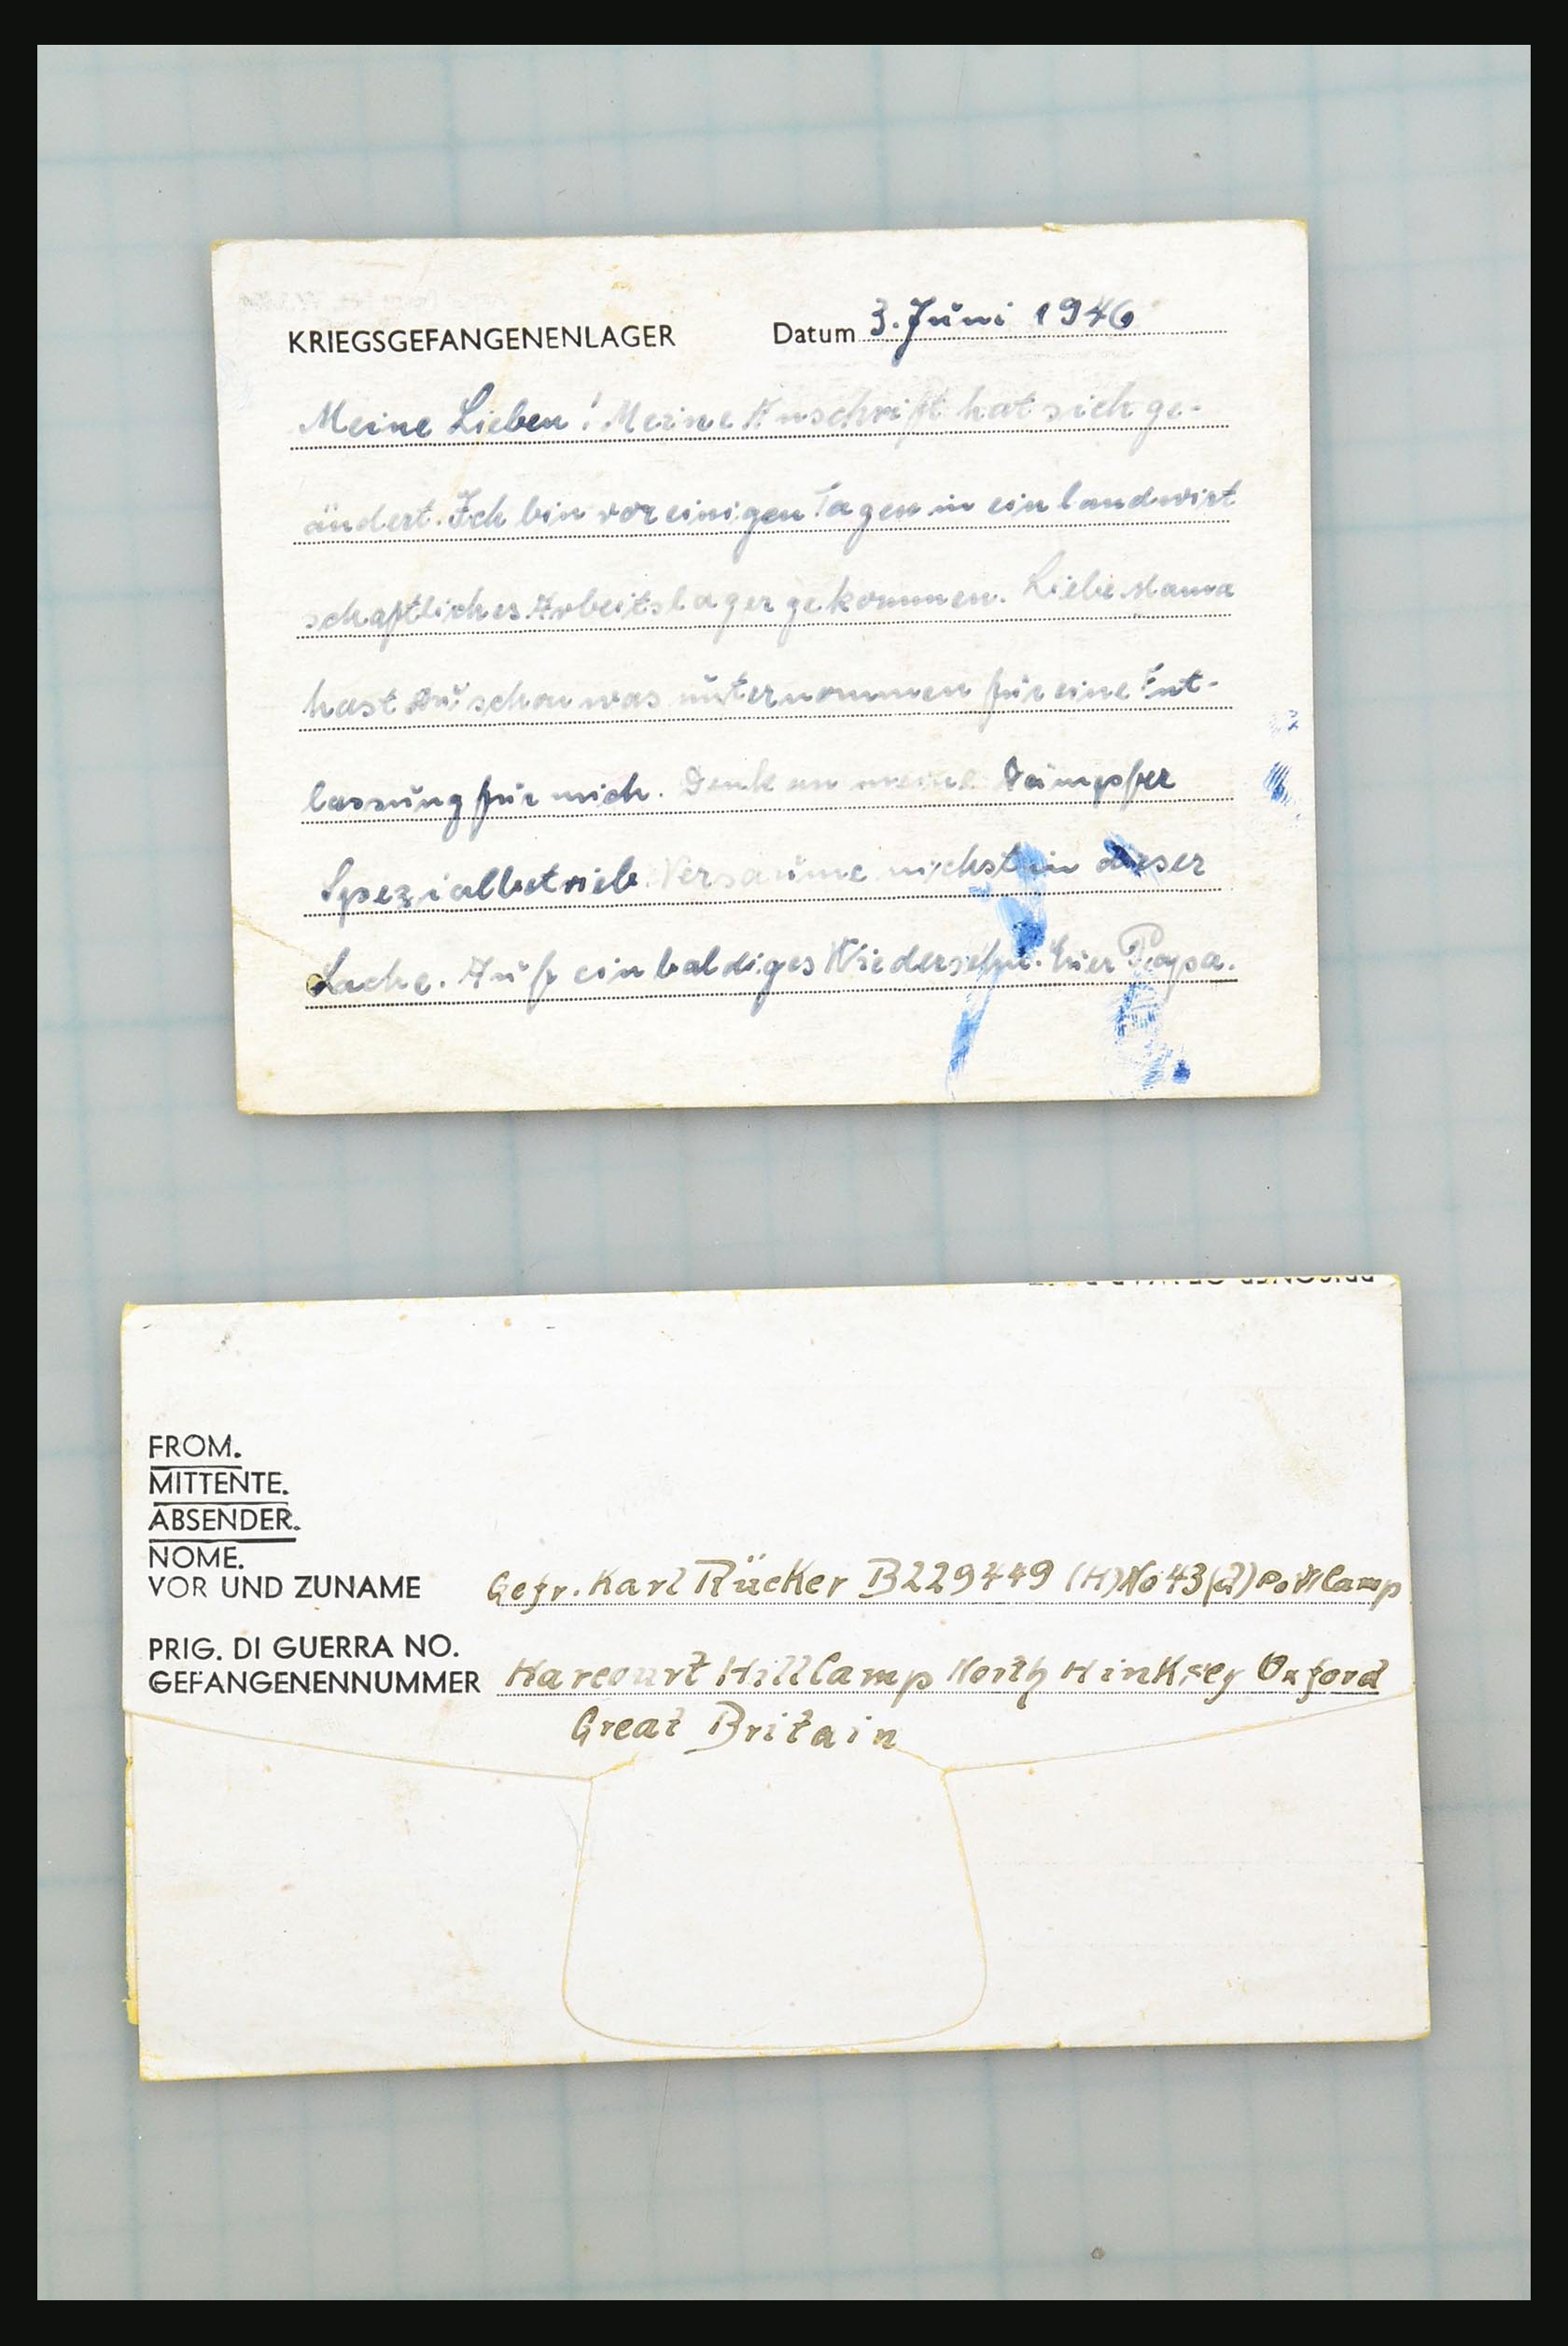 KRIEGSGEFANGENENLAGER Datum 3. Juni 1946
Meine Lieben! Meine Anschrift hat sich ge-
ändert. Ich bin vor einigen Tagen in ein landwirt
schaftliches Arbeitslager gekommen. Liebe Mama
hast du schon was unternommen für eine Ent-
lassung für mich. Denk an meine Dämpfer
Spezialbetrieb. Versäume nichst in dieser
Sache. Auf ein baldiges Wiedersehn. Euer Papa.
PRISONER OF WAR
FROM.
MITTENTE.
ABSENDER.
NOME.
VOR UND ZUNAME Gefr. Karl Rücker B229449 (H) No 43 (2) PoW Camp
PRIG. DI GUERRA NO.
GEFANGENENNUMMER Harcourt Hill Camp North Hinksey Oxford
Great Britain